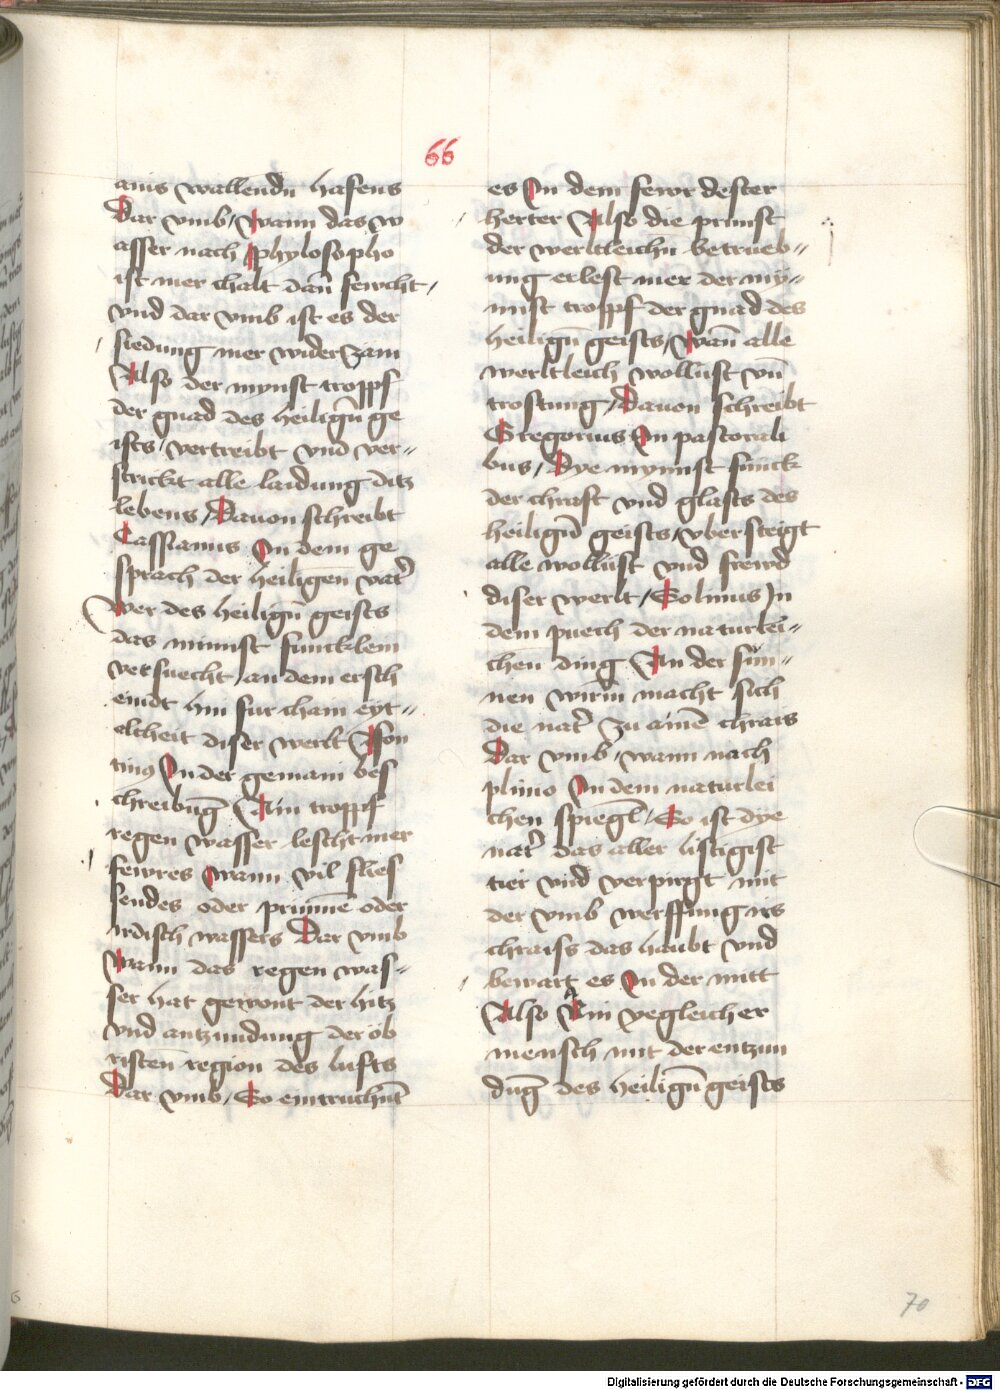 66
ains wallendn hafens
Dar vmb / wann das w
asser nach phylosopho
ist mer chalt dan̄ fewcht /
vnd dar vmb ist es der
siedung mer wider zäm
Also der mynst tropf
der gnad des heilign̄ ge
ists / vertreibt vnd ver⸗
strickt alle laidung ditz
lebens / Dauon schreibt
Cassianus In dem ge
sprach der heiligen̄ vat̄
Wer des heilign̄ geists
das minnst funcklem
versuecht / an dem ersch
eindt hin fur cham eyt⸗
elcheit diser werlt
In der gemain bes
chreibūg Ain tropf
regen wasser lescht mer
fewres wann vil flies
sendes oder prunnē oder
irdisch wassers Dar vmb
wann das regen was⸗
ser hat gewont der hitz
vnd antzundung der öb
risten̄ region des lufts
Dar vmb / So eintruchnt̄
es In dem fewr dester
herter Also die prunst
der werltleichn̄ betrueb⸗
ung erlest mer der my⸗
nnst tropf der gnad des
heilign̄ geists / wan̄ alle
werltleich wollust vn̄
trostung / Dauon schreibt
Gregorius In pastorali
bus / Dye mynnst funck
der chraft vnd glasts des
heilign̄ geists / vbersteigt
alle wollust vnd frewd
diser werlt / Solinus In
dem puech der naturlei⸗
chen̄ ding An der sun⸗
nen wirm macht sich
die nat̄ zu ainē chrais
Dar vmb / wann nach
plinio In dem naturlei
chen spiegl / So ist dye
nat̄ das aller listigist
tier vnd verpirgt mit
der vmb werffung irs
chraiss das haubt vnd
bewart es In der mitt
Also Ain yegleicher
mensch mit der entzun
dūg des heilign̄ geists
70
Digitalisierung gefördert durch die Deutsche Forschungsgemeinschaft - DFG